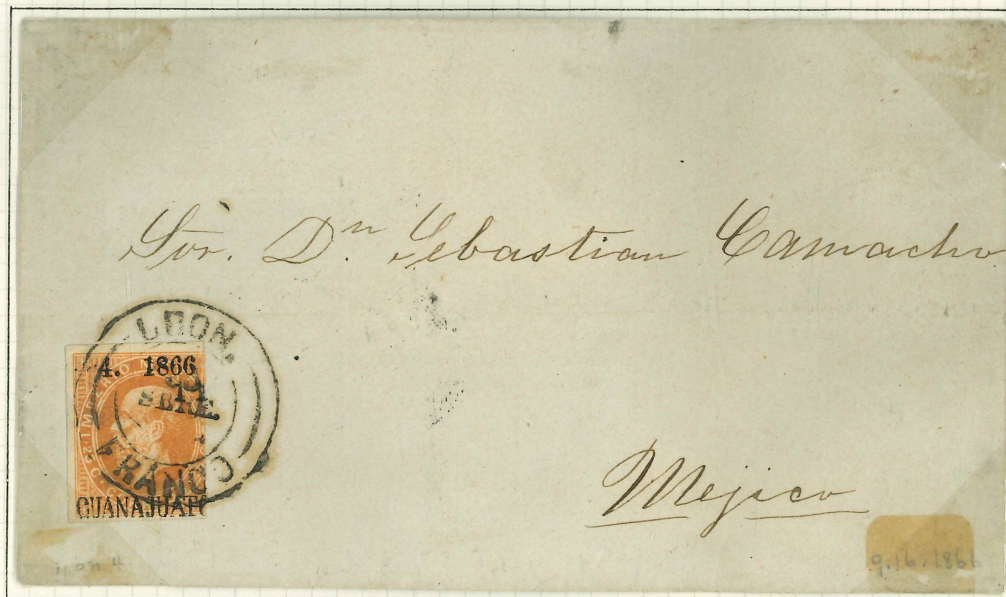 Sor. Dn Sebastian Camacho
LEON.
4. 1866
SBRE.
FRANCO
GUANAJUATO
Mejico
on 4
9.16.1866